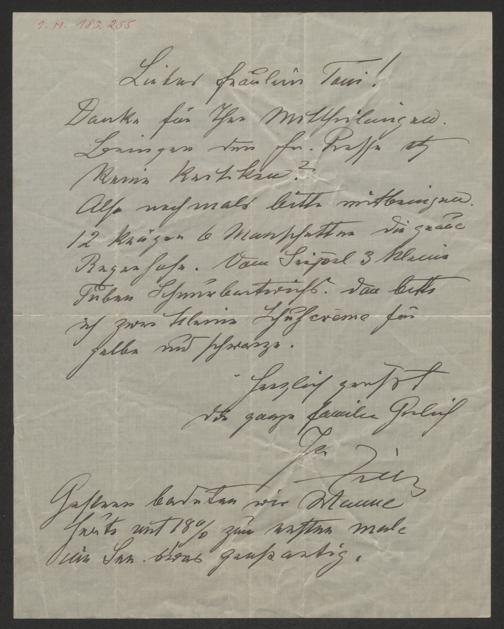 I. N. 183.255
Liebes Fräulein Toni!
Danke für Ihre Mittheilungen.
Bringen den fr. Presse etz
keine Kritiken?
Also nochmals bitte mitbringen.
12 Krägen 6 Manschetten die graue
Regenhose. Vom Seipel 3 kleine
Tuben Schnurbartwichs. dan bitte
ich zwei kleine Schuhcreme für
gelbe und schwarze.
Herzlich grüsst
die ganze Familie
Ihr
Gestern badeten wir Wanne
heute mit 18° zum ersten male
im See. etwas großartig.